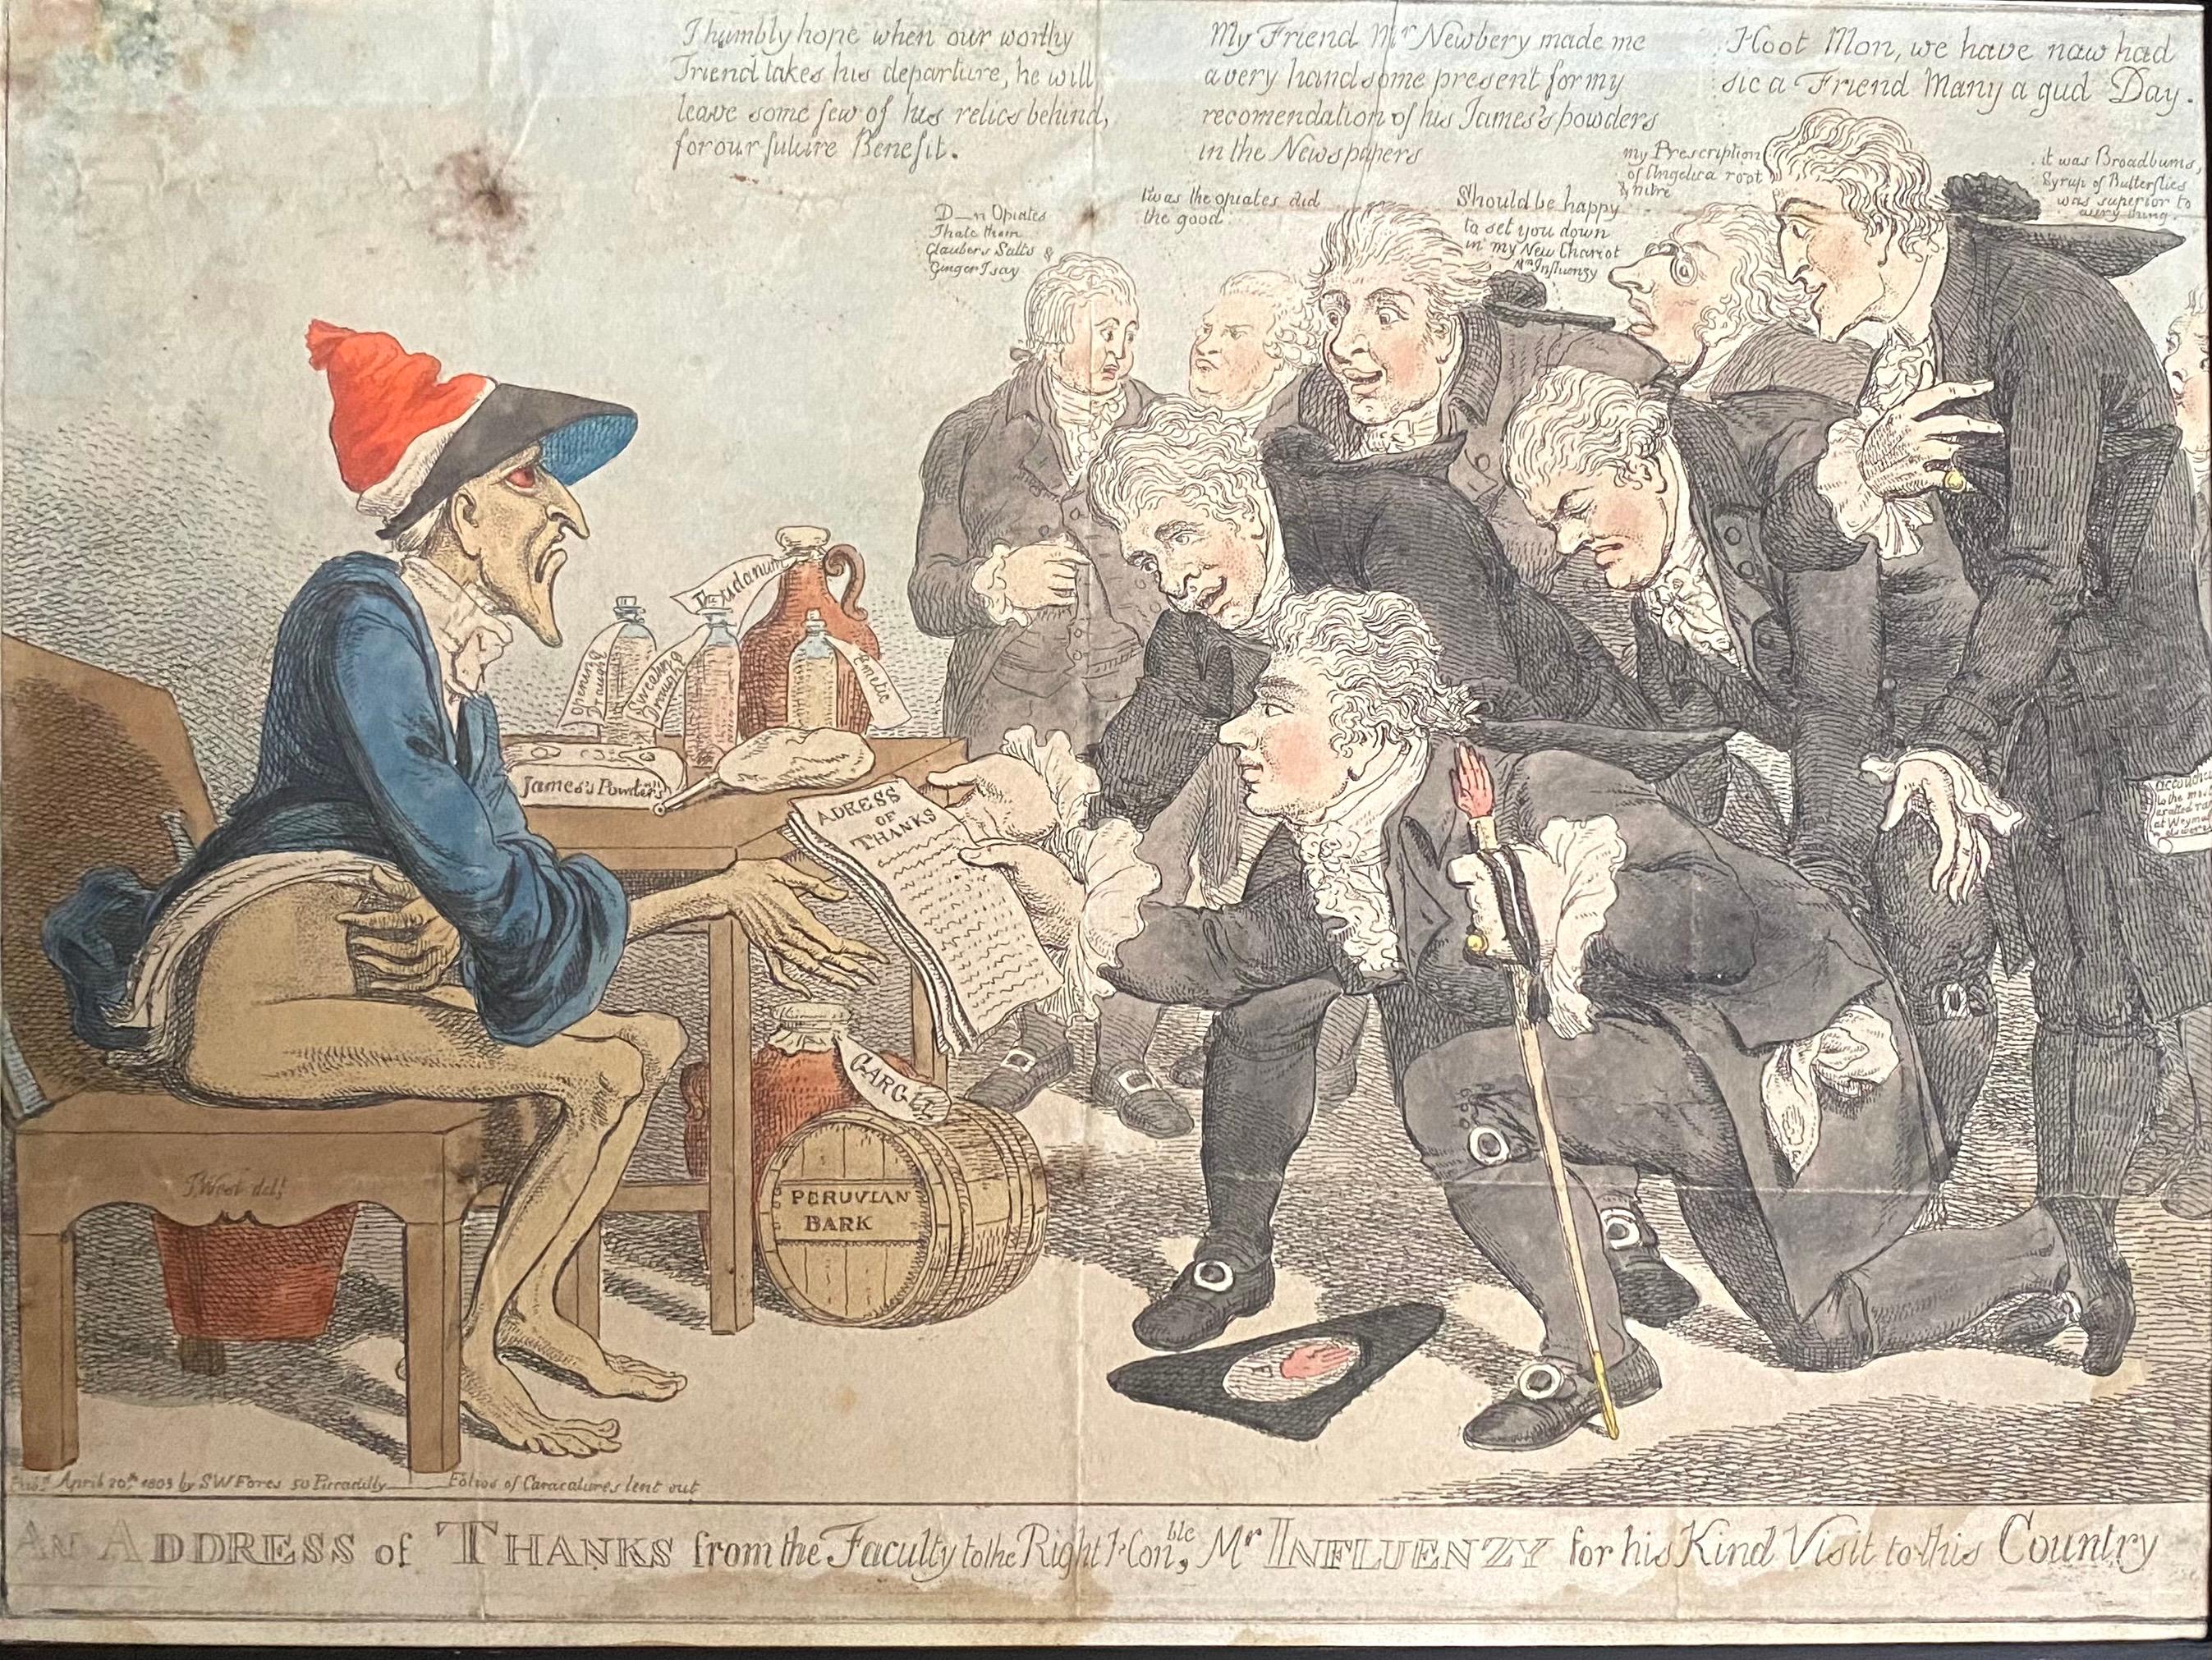 I humbly hope when our worthy
Friend takes his departure, he will
leave some few of his relics behind,
for our future Benefit.
My Friend Mr Newbery made me
a very handsome present for my
recomendation of his James's powders
in the Newspapers
Hoot Mon, we have naw had
sic a Friend Many a gud Day.
D—n Opiates
I hate them
Glaubers Salts &
Ginger I say
twas the opiates did
the good
Should be happy
to set you down
in my New Chariot
Mr Influenzy
my Prescription
of Angelica root
& nitre
it was Broadbums,
Syrup of Butterflies
was superior to
every thing.
Laudanum
Opening
Draught
Sweating
Draught
Emetic
James's Powders
ADRESS
OF
THANKS
GARGLE
PERUVIAN
BARK
J West delt
F
F
at Weym
Pubd April 20th 1803 by SW Fores 50 Piccadilly Folios of Caracatures lent out
AN ADDRESS of THANKS from the Faculty to the Right Honble, Mr INFLUENZY for his Kind Visit to this Country